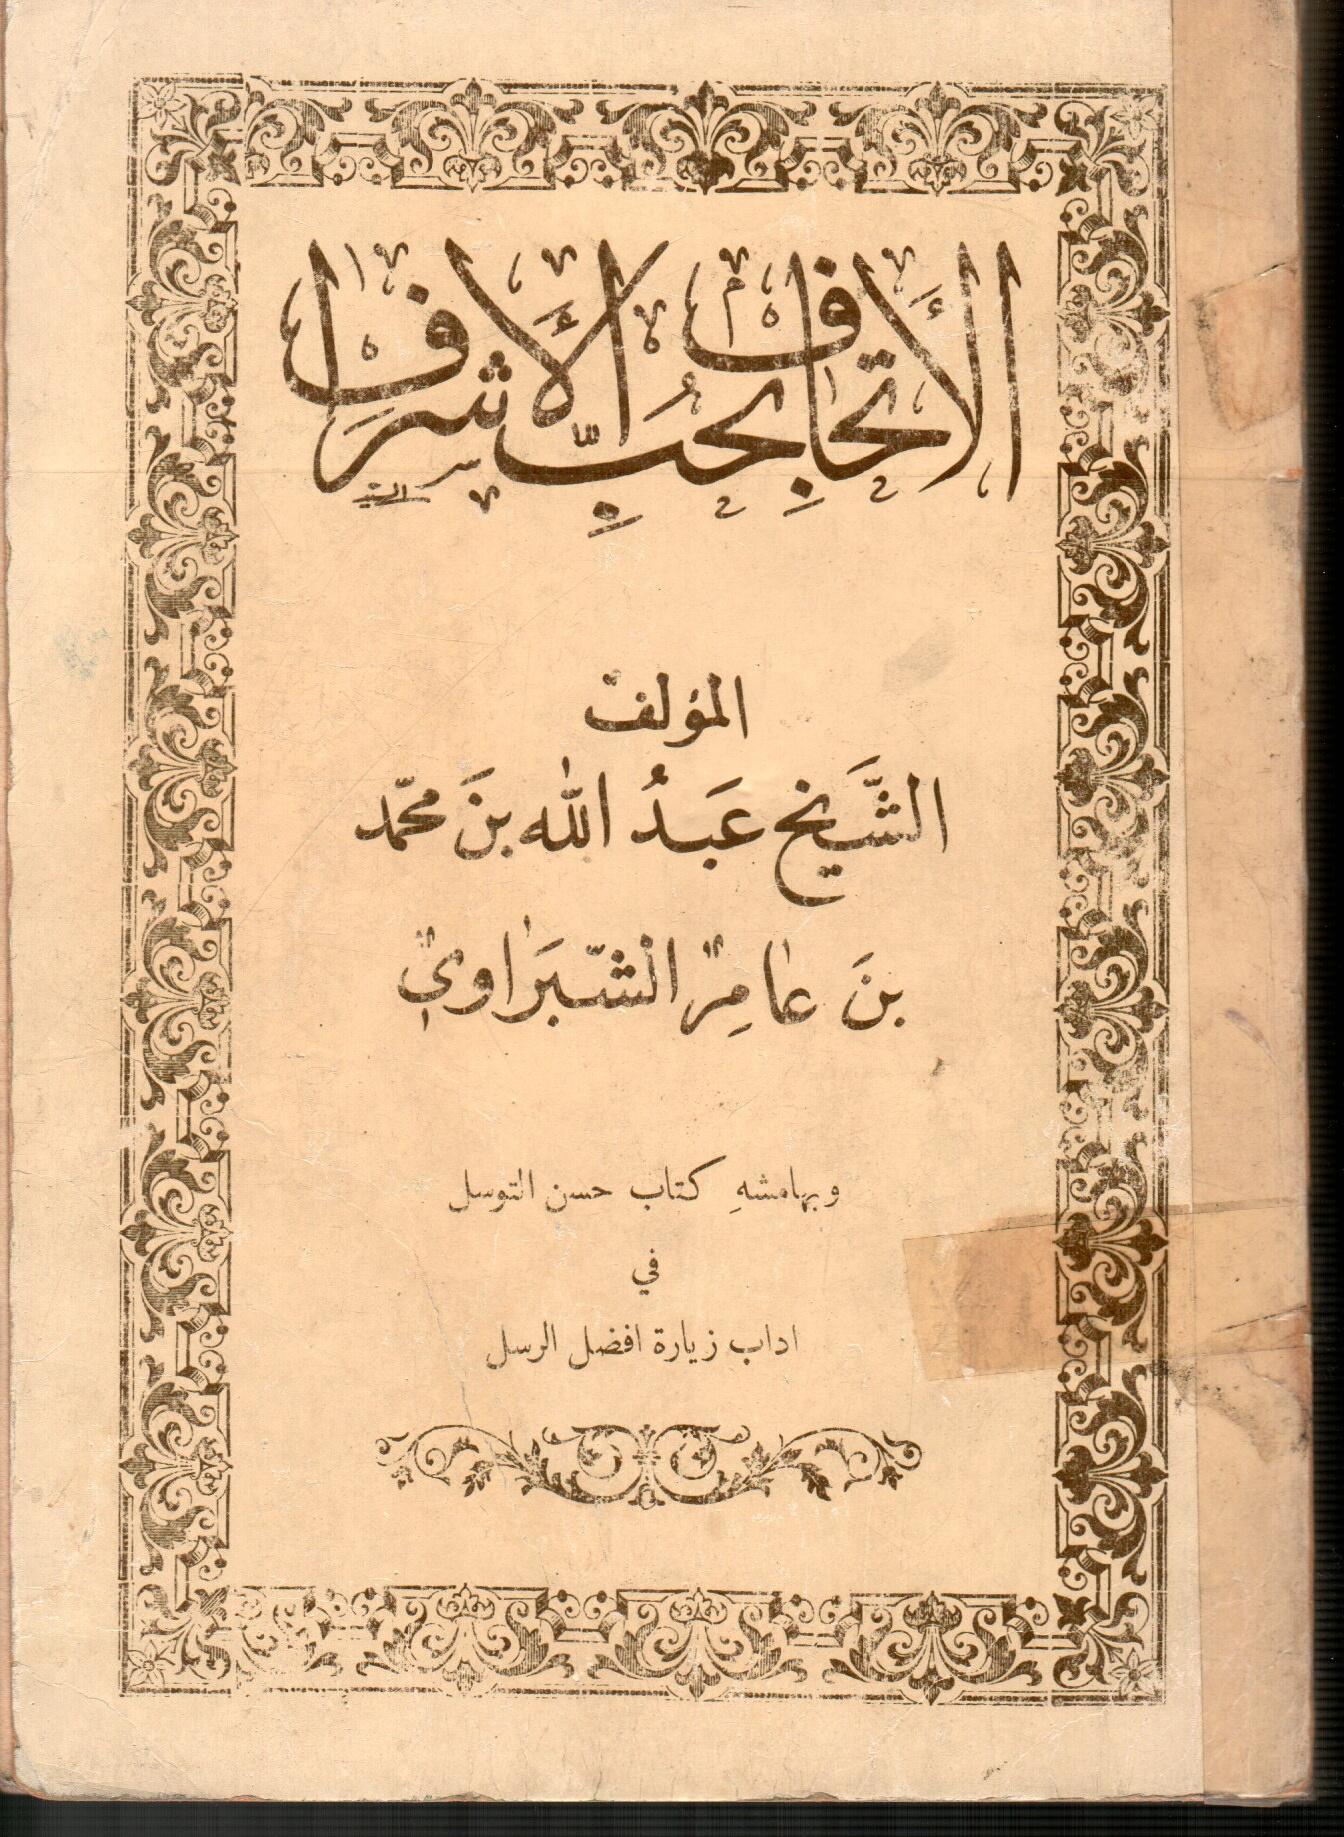 الأتحاف بحُبِّ الأشراف
المؤلف
الشَّيخ عَبدُ الله بنَ محمّد
بنَ عامِر الشّبَراوي
وبهامشهِ كتاب حسن التوسل
في
اداب زيارة افضل الرسل